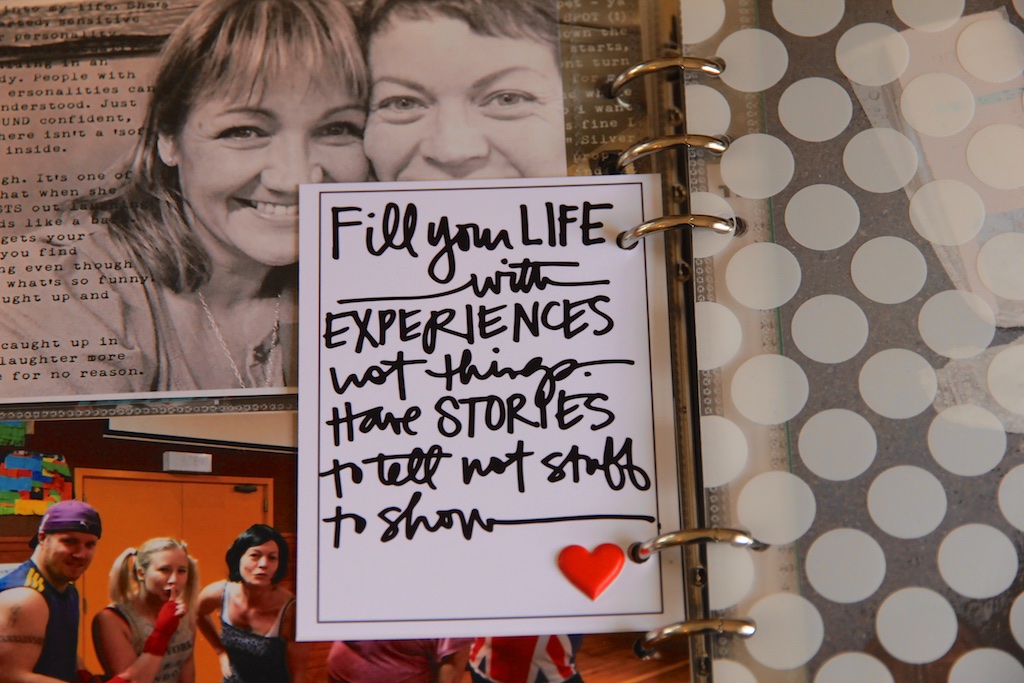 into my life. She's
sensitive
personality.
in an
People with
personalities can
understood. Just
confident,
here isn't a
inside.
It's one of
that when she
out
like a
gets your
you find
even though
what's so funny
caught up and
caught up in
laughter more
for no reason.
own the
starts,
turn
for
i want
fine I
Silver
Fill your LIFE
with
EXPERIENCES
not things.
Have STORIES
to tell not stuff
to show